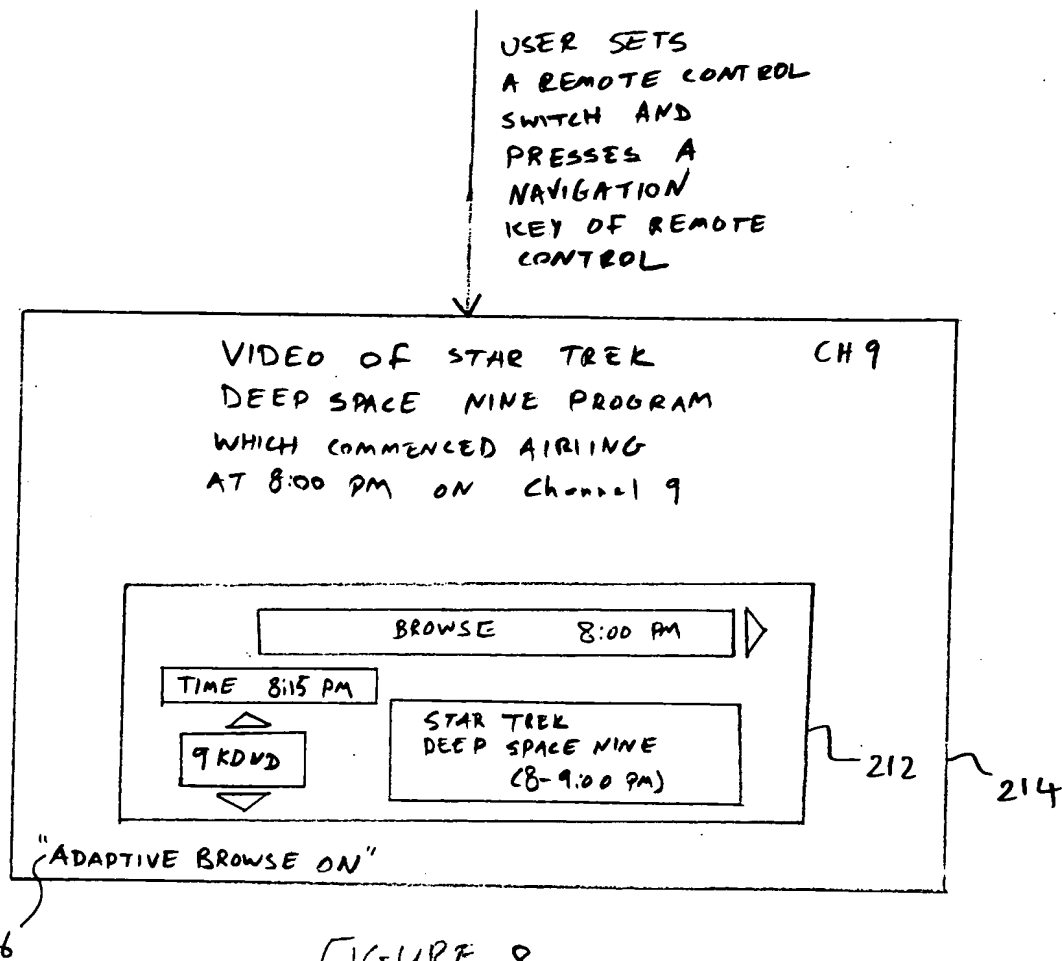 USER SETS
A REMOTE CONTROL
SWITCH AND
PRESSES A
NAVIGATION
KEY OF REMOTE
CONTROL
VIDEO OF STAR TREK CH 9
DEEP SPACE NINE PROGRAM
WHICH COMMENCED AIRIING
AT 8:00 PM ON Channel 9
BROWSE 8:00 PM
TIME 8:15 PM
STAR TREK
DEEP SPACE NINE
(8-9:00 PM)
9 KDVD
212
214
"ADAPTIVE BROWSE ON"
6
FIGURE 8